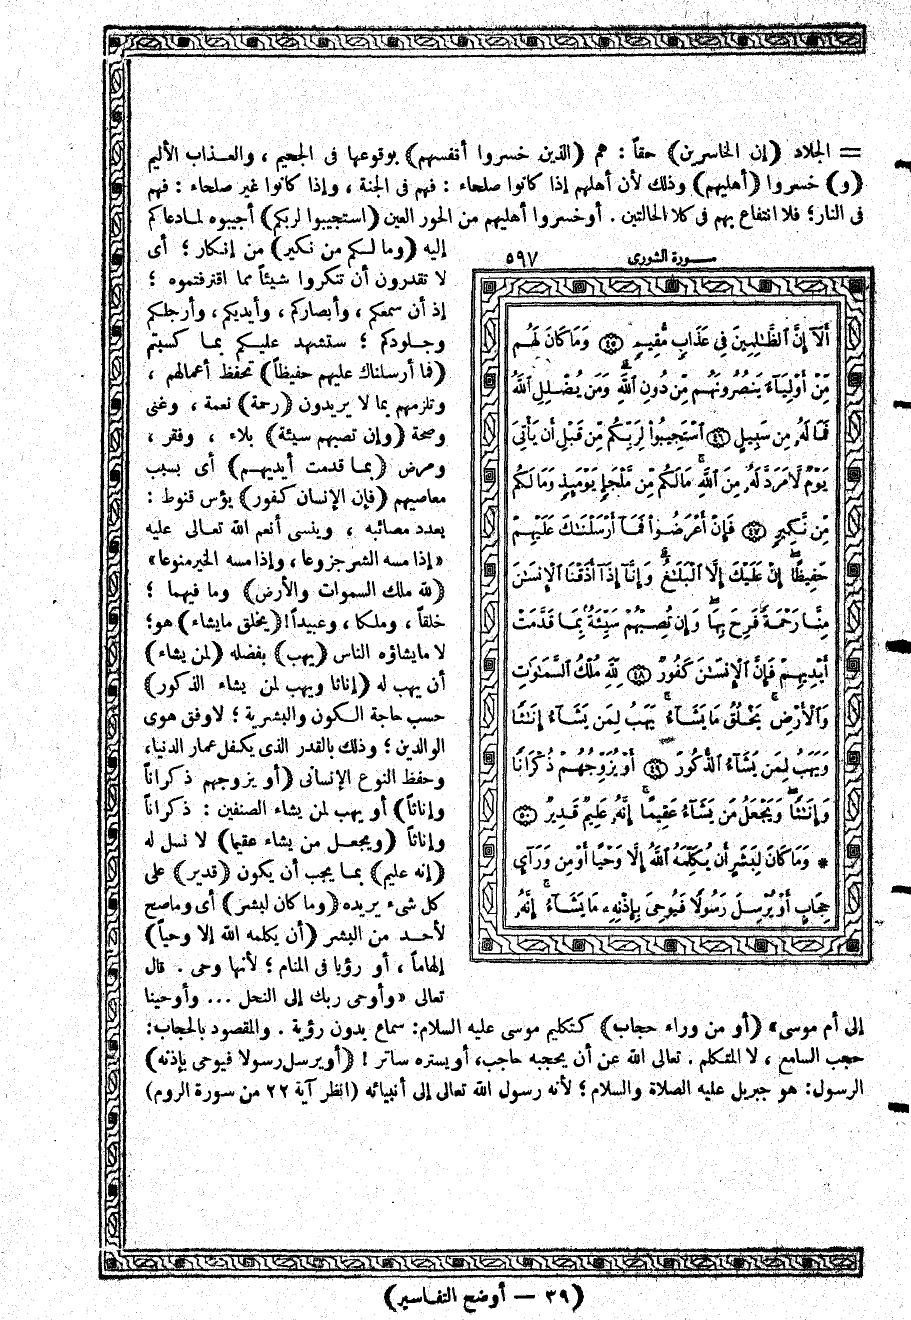 = الجلاد (إن الخاسرين) حقاً : هم (الذين خسروا أنفسهم) بوقوعها فى الجحيم ، والعذاب الأليم
(و) خسروا (أهليهم) وذلك لأن أهلهم إذا كانوا صلحاء : فهم فى الجنة ، وإذا كانوا غير صلحاء : فهم
فى النار؛ فلا انتفاع بهم فى كلا الحالتين . أو خسروا أهليهم من الحور العين (استجيبوا لربكم) أجيبوه لما دعاكم
إليه (وما لكم من نكير) من إنكار ؛ أى
لا تقدرون أن تنكروا شيئاً مما اقترفتموه ؛
إذ أن سمعكم ، وأبصاركم ، وأيديكم ، وأرجلكم
وجلودكم ؛ ستشهد عليكم بما كسبتم
(فما أرسلناك عليهم حفيظاً) تحفظ أعمالهم ،
وتلزمهم بما لا يريدون (رحمة) نعمة ، وغنى
وصحة (وإن تصبهم سيئة) بلاء ، وفقر ،
ومرض (بما قدمت أيديهم) أى بسبب
معاصيهم (فإن الإنسان كفور) يؤس قنوط :
يعدد مصائبه ، وينسى أنعم الله تعالى عليه
«إذا مسه الشر جزوعا ، وإذا مسه الخير منوعا»
(لله ملك السموات والأرض) وما فيهما ؛
خلقاً ، وملكا ، وعبيداً! (يخلق ما يشاء) هو؛
لا ما يشاؤه الناس (يهب) بفضله (لمن يشاء)
أن يهب له (إناثا ويهب لمن يشاء الذكور)
حسب حاجة الكون والبشرية ؛ لا وفق هوى
الوالدين ؛ وذلك بالقدر الذى يكفل عمار الدنيا،
وحفظ النوع الإنسانى (أو يزوجهم ذكراناً
وإناثاً) أو يهب لمن يشاء الصنفين : ذكراناً
وإناثاً (ويجعل من يشاء عقيما) لا نسل له
(إنه عليم) بما يجب أن يكون (قدير) على
كل شىء يريده (وما كان لبشر) أى وما صح
لأحد من البشر (أن يكلمه الله إلا وحياً)
إلهاماً ، أو رؤيا فى المنام ؛ لأنها وحى . قال
تعالى «وأوحى ربك إلى النحل ... وأوحينا
سورة الشورى ٥٩٧
أَلَآ إِنَّ ٱلظَّـٰلِمِينَ فِى عَذَابٍ مُّقِيمٍ ﴿٤٥﴾ وَمَا كَانَ لَهُم
مِّنْ أَوْلِيَآءَ يَنصُرُونَهُم مِّن دُونِ ٱللَّهِ ۗ وَمَن يُضْلِلِ ٱللَّهُ
فَمَا لَهُۥ مِن سَبِيلٍ ﴿٤٦﴾ ٱسْتَجِيبُوا۟ لِرَبِّكُم مِّن قَبْلِ أَن يَأْتِىَ
يَوْمٌ لَّا مَرَدَّ لَهُۥ مِنَ ٱللَّهِ ۚ مَا لَكُم مِّن مَّلْجَإٍ يَوْمَئِذٍ وَمَا لَكُم
مِّن نَّكِيرٍ ﴿٤٧﴾ فَإِنْ أَعْرَضُوا۟ فَمَآ أَرْسَلْنَـٰكَ عَلَيْهِمْ
حَفِيظًا ۖ إِنْ عَلَيْكَ إِلَّا ٱلْبَلَـٰغُ ۗ وَإِنَّآ إِذَآ أَذَقْنَا ٱلْإِنسَـٰنَ
مِنَّا رَحْمَةً فَرِحَ بِهَا ۖ وَإِن تُصِبْهُمْ سَيِّئَةٌۢ بِمَا قَدَّمَتْ
أَيْدِيهِمْ فَإِنَّ ٱلْإِنسَـٰنَ كَفُورٌ ﴿٤٨﴾ لِّلَّهِ مُلْكُ ٱلسَّمَـٰوَٰتِ
وَٱلْأَرْضِ ۚ يَخْلُقُ مَا يَشَآءُ ۚ يَهَبُ لِمَن يَشَآءُ إِنَـٰثًا
وَيَهَبُ لِمَن يَشَآءُ ٱلذُّكُورَ ﴿٤٩﴾ أَوْ يُزَوِّجُهُمْ ذُكْرَانًا
وَإِنَـٰثًا ۖ وَيَجْعَلُ مَن يَشَآءُ عَقِيمًا ۚ إِنَّهُۥ عَلِيمٌ قَدِيرٌ ﴿٥٠﴾
* وَمَا كَانَ لِبَشَرٍ أَن يُكَلِّمَهُ ٱللَّهُ إِلَّا وَحْيًا أَوْ مِن وَرَآئِ
حِجَابٍ أَوْ يُرْسِلَ رَسُولًا فَيُوحِىَ بِإِذْنِهِۦ مَا يَشَآءُ ۚ إِنَّهُۥ
إلى أم موسى» (أو من وراء حجاب) كتكليم موسى عليه السلام: سماع بدون رؤية . والمقصود بالحجاب:
حجب السامع ، لا المتكلم . تعالى الله عن أن يحجبه حاجب، أو يستره ساتر ! (أو يرسل رسولا فيوحى بإذنه)
الرسول: هو جبريل عليه الصلاة والسلام ؛ لأنه رسول الله تعالى إلى أنبيائه (انظر آية ٢٢ من سورة الروم)
(٣٩ — أوضح التفاسير)